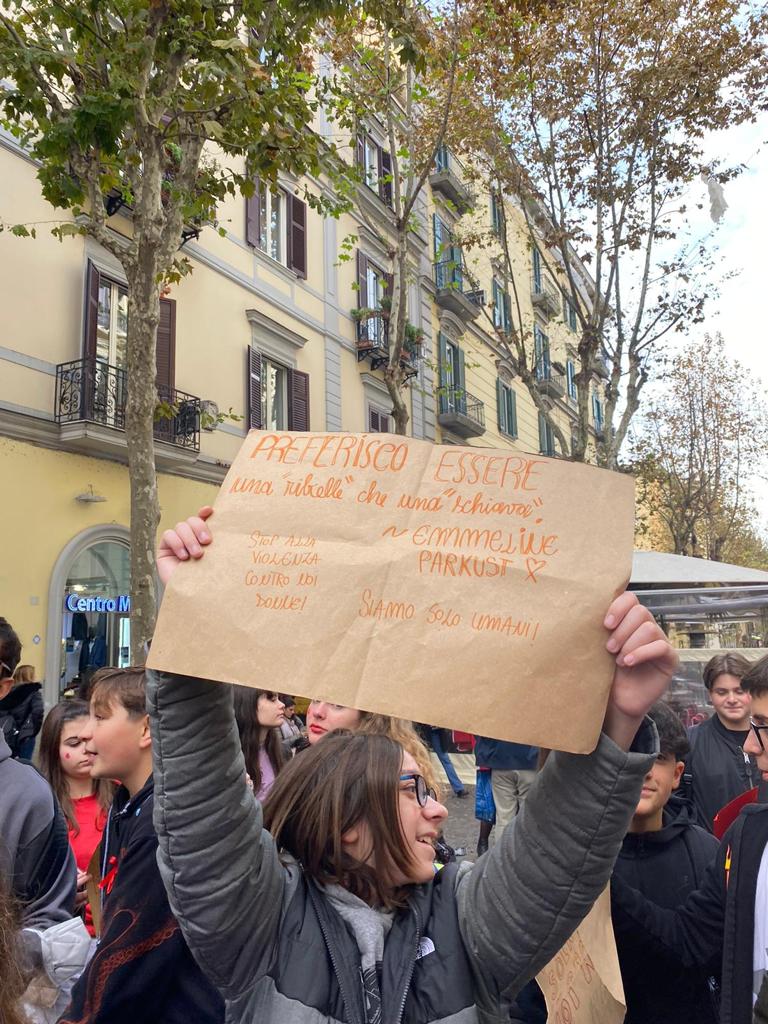 PREFERISCO ESSERE
una "ribelle" che una "schiava".
~ EMMELINE
PARKUST
STOP ALLA
VIOLENZA
CONTRO LDI
DONNE!
SIAMO SOLO UMANI!
Centro M